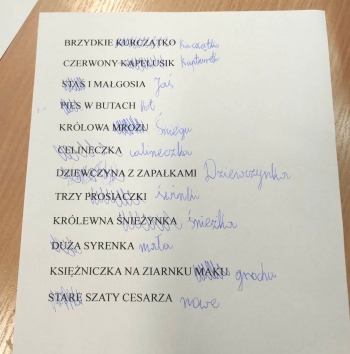 BRZYDKIE KURCZĄTKO Kaczątko
CZERWONY KAPELUSIK Kapturek
STAŚ I MAŁGOSIA Jaś
PIES W BUTACH kot
KRÓLOWA MROZU Śniegu
CELINECZKA calineczka
DZIEWCZYNA Z ZAPAŁKAMI Dziewczynka
TRZY PROSIACZKI świnki
KRÓLEWNA ŚNIEŻYNKA śnieżka
DUŻA SYRENKA mała
KSIĘŻNICZKA NA ZIARNKU MAKU grochu
STARE SZATY CESARZA nowe